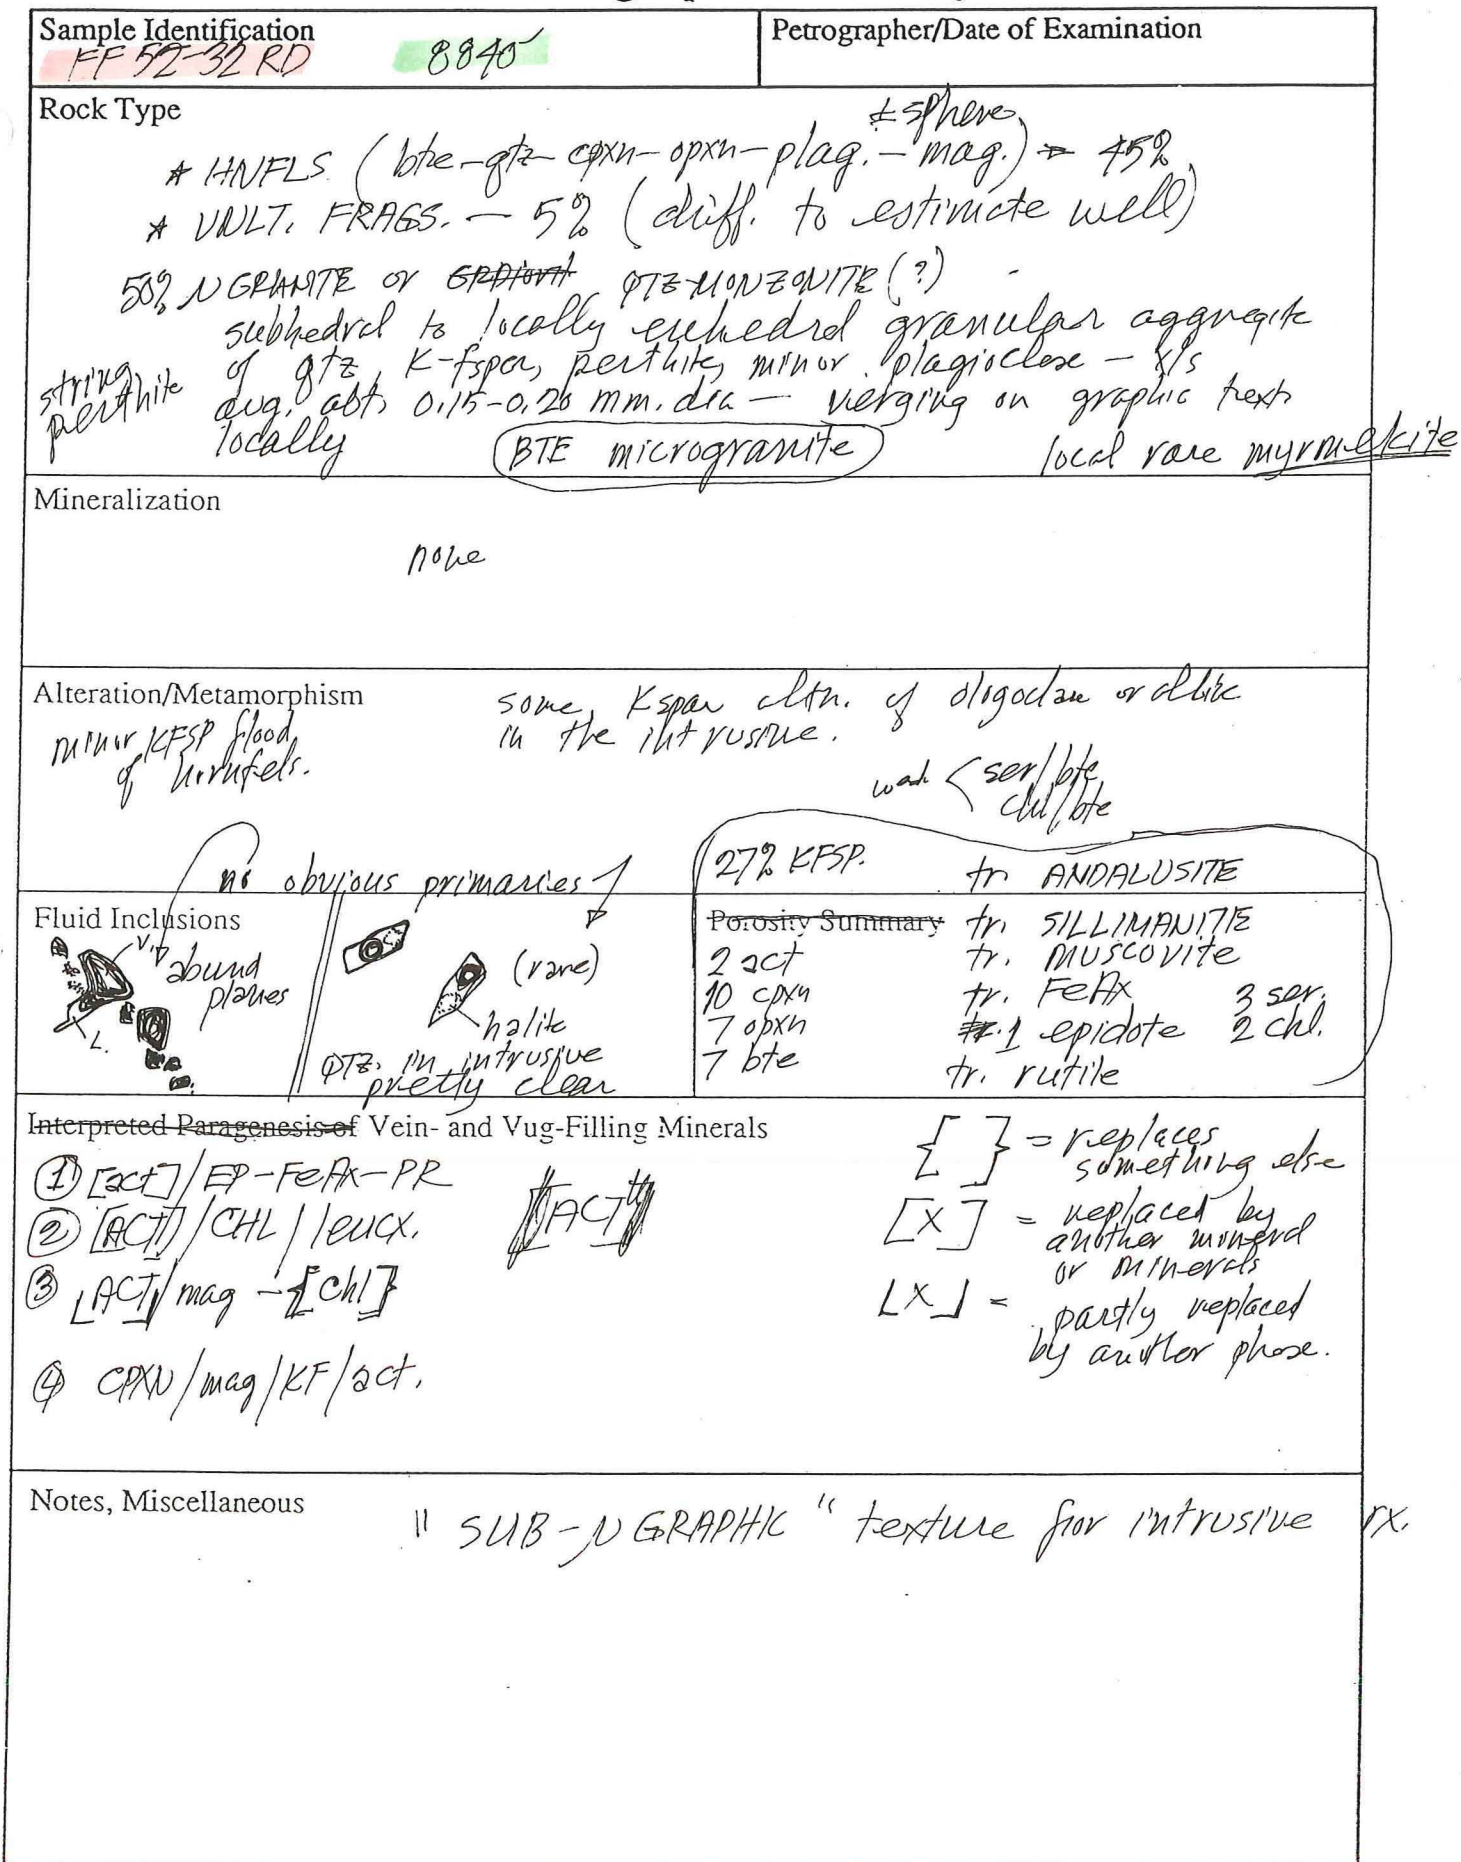 Sample Identification
FF 52-32 RD 8840'
Petrographer/Date of Examination
Rock Type
± sphene
* HNFLS. (bte-qtz-cpxn-opxn-plag.-mag.) - 45%
* VNLT. FRAGS. — 5% (diff. to estimate well)
50% µGRANITE or GRDiorit QTZ-MONZONITE (?) -
subhedral to locally euhedral granular aggregate
of qtz, K-fspar, perthite, minor plagioclase — x/s
string perthite
avg. abt. 0.15-0.20 mm. dia — verging on graphic text.
locally
BTE microgranite
local rare myrmekite
Mineralization
none
Alteration/Metamorphism
minor KFSP flood.
of hornfels.
some Kspar altn. of oligoclase or albite
in the intrusive.
weak < ser/bte
chl/bte
no obvious primaries
27% KFSP.
tr ANDALUSITE
Fluid Inclusions
V.
abund
planes
L.
(rare)
halite
QTZ. in intrusive
pretty clear
Porosity Summary
tr. SILLIMANITE
2 act tr. MUSCOVITE
10 cpxn tr. FeAx 3 ser.
7 opxn tr. 1 epidote 2 chl.
7 bte tr. rutile
Interpreted Paragenesis of Vein- and Vug-Filling Minerals
① [act]/EP-FeAx-PR
② [ACT]/CHL/leucx.
[ACT]
③ ⌊ACT⌋/mag - {chl}
④ CPXN/mag/KF/act.
{ } = replaces
something else
[X] = replaced by
another mineral
or minerals
⌊X⌋ = partly replaced
by another phase.
Notes, Miscellaneous
"SUB-µGRAPHIC" texture for intrusive rx.